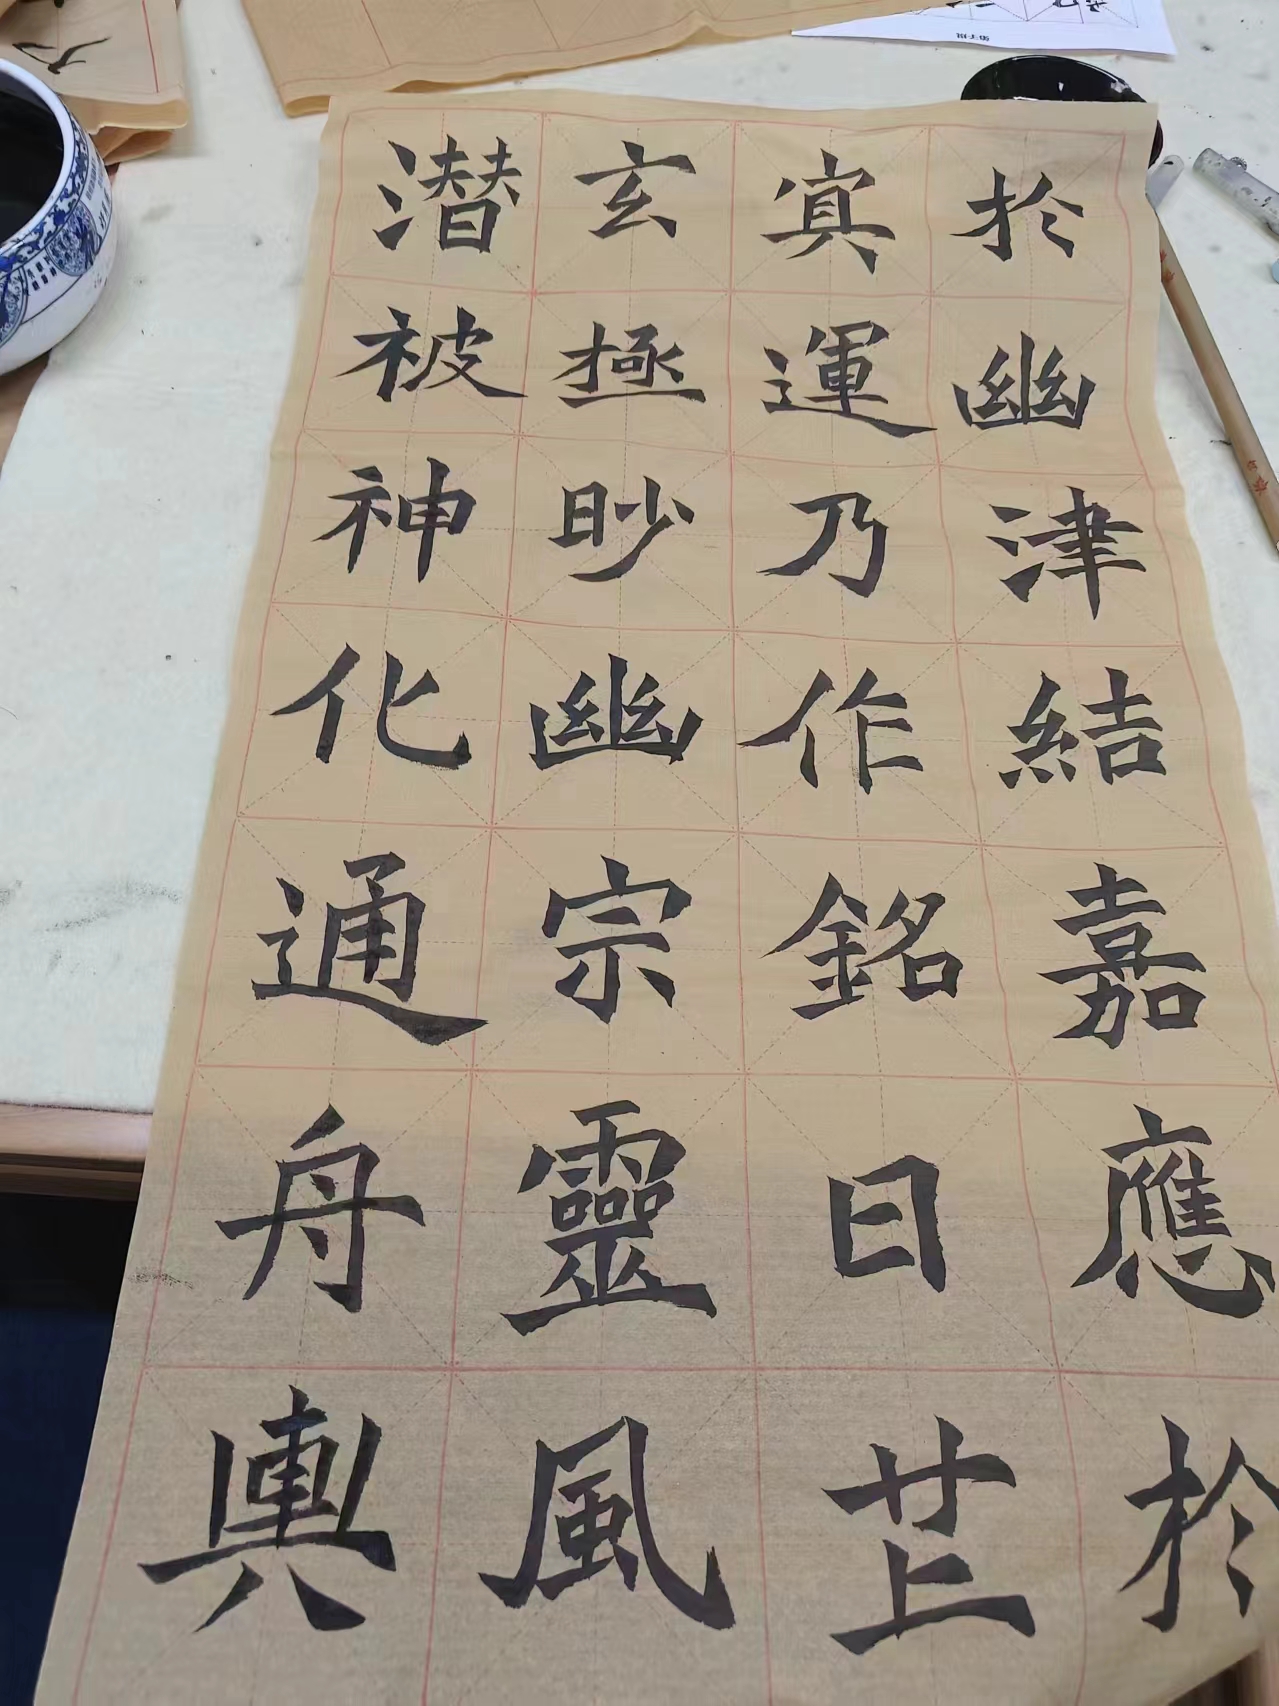 於幽津結嘉應於
㝠運乃作銘曰
玄極眇幽宗靈風
潜被神化通舟輿